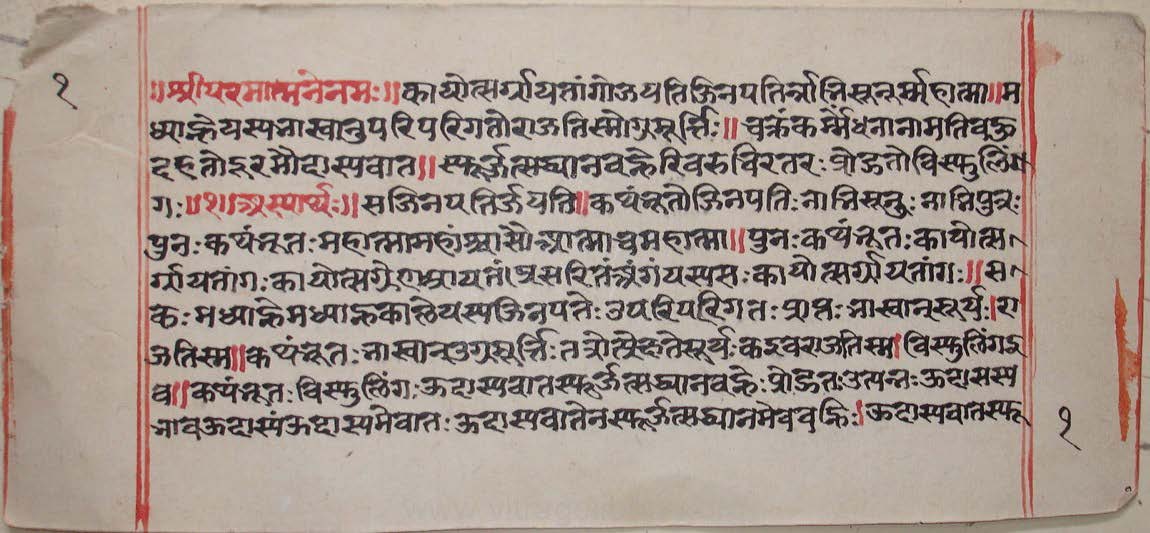 १
॥श्रीपरमात्मनेनमः॥ कायोत्सर्गायतांगोजयतिजिनपतिर्नाभिसूनुर्महात्मा॥म
ध्याह्नेयस्यभास्वानुपरिपरिगतोराजतिस्मोग्रमूर्त्तिः॥ चक्रंकर्म्मेंधनानामतिबहु
दहतोदूरमौदास्यवात॥ स्फूर्जत्सद्ध्यानवह्नेरिवरुचिरतरःप्रोद्गतोविस्फुलिंग
गः॥१॥अस्यार्थः॥ सजिनपतिर्जयति॥ कथंभूतोजिनपतिःनाभिसूनुःनाभिपुत्रः
पुनःकथंभूतःमहात्मामहांश्चासौआत्माचमहात्मा॥ पुनःकथंभूतःकायोत्स
र्गायतांगःकायोत्सर्गेणआयतंप्रसरितंअंगंयस्यसःकायोत्सर्गायतांगः॥ स
कःमध्याह्नेमध्याह्नकालेयस्यजिनपतेःउपरिपरिगतःप्राप्तःभास्वान्सूर्यः।रा
जतिस्म॥ कथंभूतःभास्वान्उग्रमूर्त्तिःतत्रोत्प्रेक्षतेसूर्यःकइवराजतिस्म।विस्फुलिंगइ
व॥ कथंभूतःविस्फुलिंगःऊदास्यवातस्फूर्जत्सद्ध्यानवह्नेःप्रोद्गतःउत्पन्नःऊदासस्य
भावऊदास्यंऊदास्यमेवातःऊदास्यवातेनस्फूर्जत्सद्ध्यानमेववह्निः।ऊदास्यवातस्फू
१